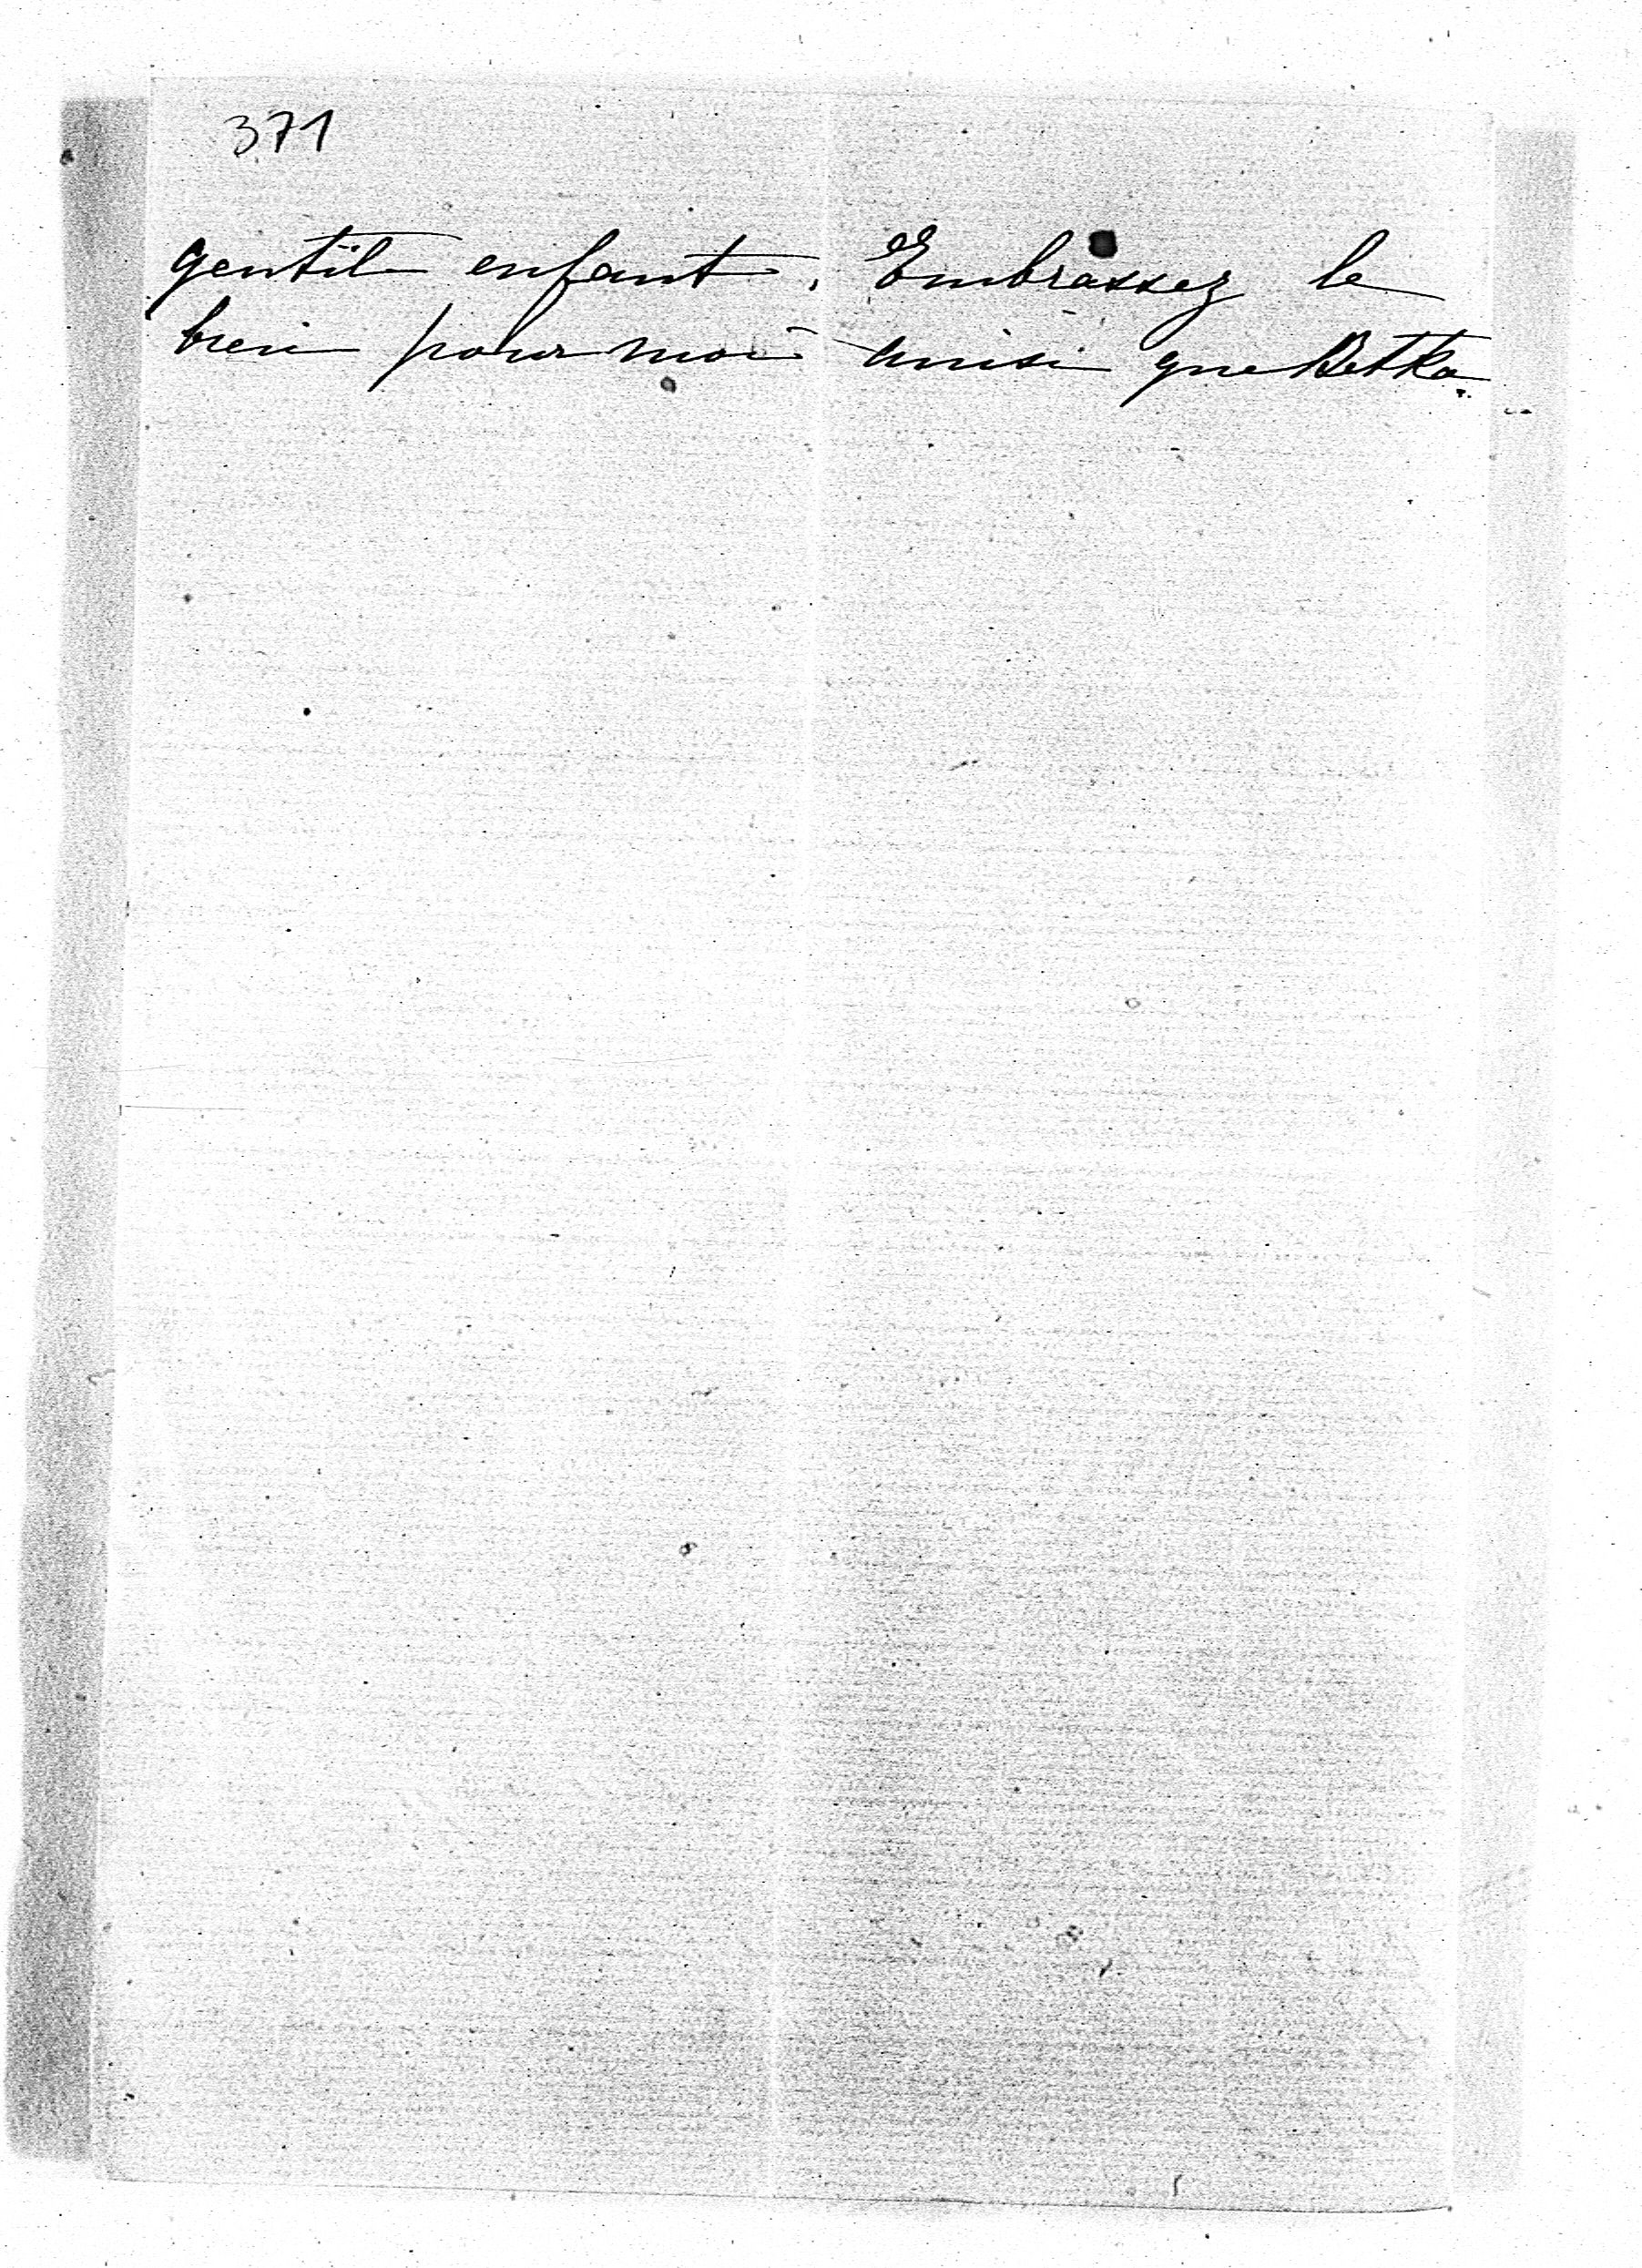 371
gentil enfant. Embrassez le
bien pour moi ainsi que Betka.